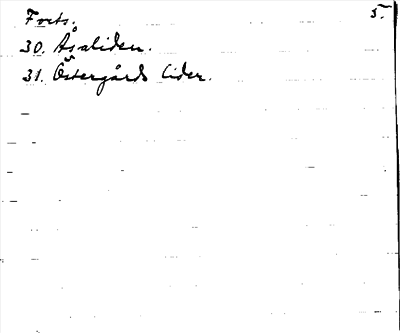 Forts. 5.
30. Åsaliden.
31. Östergårds lider.